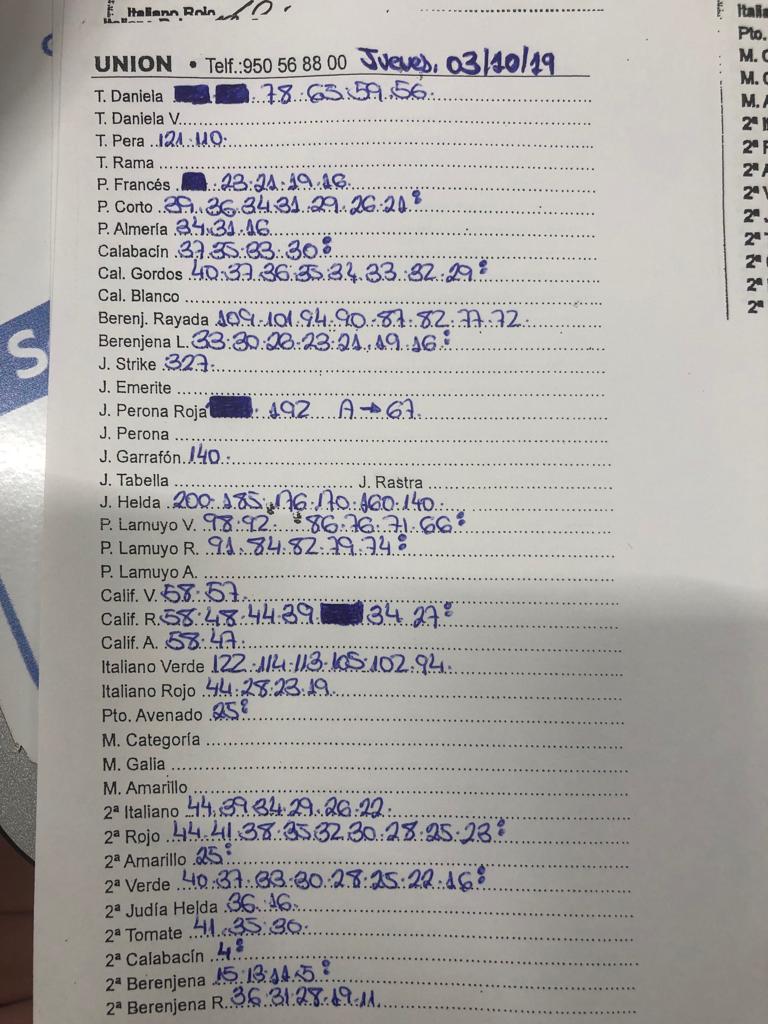 Italiano Rojo
UNION • Telf.:950 56 88 00 Jueves, 03/10/19
T. Daniela 78.63.59.56.
T. Daniela V.
T. Pera 121.110.
T. Rama
P. Francés 23.21.19.16.
P. Corto 39.36.34.31.29.26.21:
P. Almería 34.31.16
Calabacín 37.35.33.30:
Cal. Gordos 40.37.36.35.34.33.32.29:
Cal. Blanco
Berenj. Rayada 109.101.94.90.87.82.77.72.
Berenjena L. 33.30.26.23.21.19.16:
J. Strike 327.
J. Emerite
J. Perona Roja 192 A→67.
J. Perona
J. Garrafón 140.
J. Tabella J. Rastra
J. Helda 200.185.176.170.160.140.
P. Lamuyo V. 98.92. 86.76.71.66:
P. Lamuyo R. 91.84.82.79.74:
P. Lamuyo A.
Calif. V. 58.57.
Calif. R. 58.48.44.39 34.27:
Calif. A. 58.47.
Italiano Verde 122.114.113.105.102.94.
Italiano Rojo 44.28.23.19.
Pto. Avenado 25:
M. Categoría
M. Galia
M. Amarillo
2ª Italiano 44.39.34.29.26.22.
2ª Rojo 44.41.38.35.32.30.28.25.23:
2ª Amarillo 25:
2ª Verde 40.37.33.30.28.25.22.16:
2ª Judía Helda 36.16.
2ª Tomate 41.35.30.
2ª Calabacín 4:
2ª Berenjena 15.13.11.5:
2ª Berenjena R. 36.31.28.19.11.
Pto.